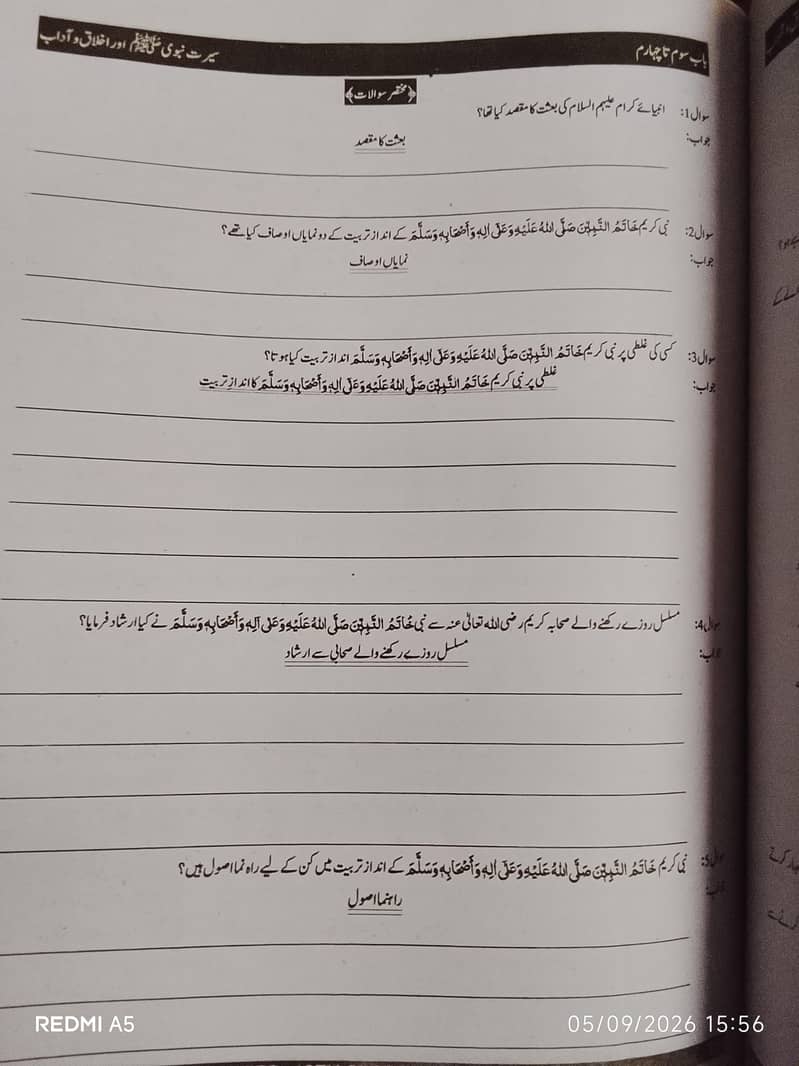 باب سوم تا چہارم
سیرت نبوی ﷺ اور اخلاق و آداب
﴿مختصر سوالات﴾
سوال 1: انبیائے کرام علیہم السلام کی بعثت کا مقصد کیا تھا؟
جواب: بعثت کا مقصد
سوال 2: نبی کریم خَاتَمُ النَّبِیّٖنَ صَلَّی اللهُ عَلَیْهِ وَعَلٰی اٰلِهٖ وَاَصْحَابِهٖ وَسَلَّمَ کے انداز تربیت کے دو نمایاں اوصاف کیا تھے؟
جواب: نمایاں اوصاف
سوال 3: کسی کی غلطی پر نبی کریم خَاتَمُ النَّبِیّٖنَ صَلَّی اللهُ عَلَیْهِ وَعَلٰی اٰلِهٖ وَاَصْحَابِهٖ وَسَلَّمَ انداز تربیت کیا ہوتا؟
جواب: غلطی پر نبی کریم خَاتَمُ النَّبِیّٖنَ صَلَّی اللهُ عَلَیْهِ وَعَلٰی اٰلِهٖ وَاَصْحَابِهٖ وَسَلَّمَ کا اندازِ تربیت
سوال 4: مسلسل روزے رکھنے والے صحابہ کریم رضی اللہ تعالیٰ عنہ سے نبی خَاتَمُ النَّبِیّٖنَ صَلَّی اللهُ عَلَیْهِ وَعَلٰی آلِهٖ وَاَصْحَابِهٖ وَسَلَّمَ نے کیا ارشاد فرمایا؟
جواب: مسلسل روزے رکھنے والے صحابی سے ارشاد
سوال 5: نبی کریم خَاتَمُ النَّبِیّٖنَ صَلَّی اللهُ عَلَیْهِ وَعَلٰی اٰلِهٖ وَاَصْحَابِهٖ وَسَلَّمَ کے انداز تربیت میں کن کے لیے راہ نما اصول ہیں؟
جواب: راہنما اصول
REDMI A5
05/09/2026 15:56